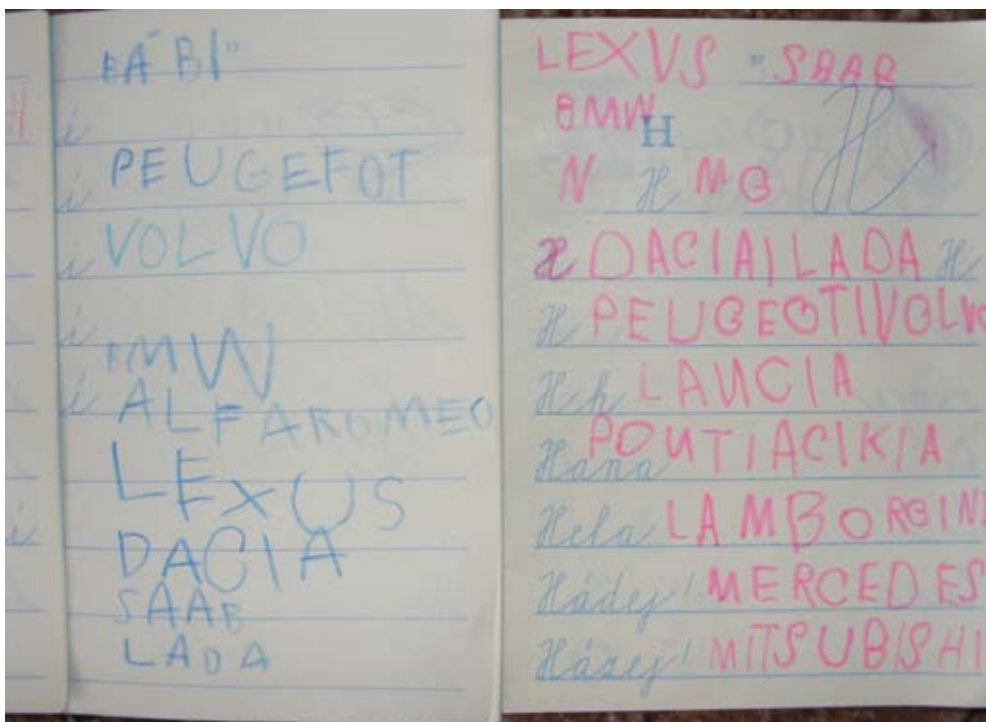 i
PEUGEFOT
i
VOLVO
i
i
BMW
i
ALFAROMEO
LEXUS
DACIA
SAAB
LADA
i
LEXUS "SAAB
BMW
H
N H MG
H
H DACIA|LADA H
H PEUGEOT|VOLVO
H h LAUCIA
Hana POUTIAC|KIA
Hela LAMBORGINI
Hádej! MERCEDES
Házej! MITSUBISHI